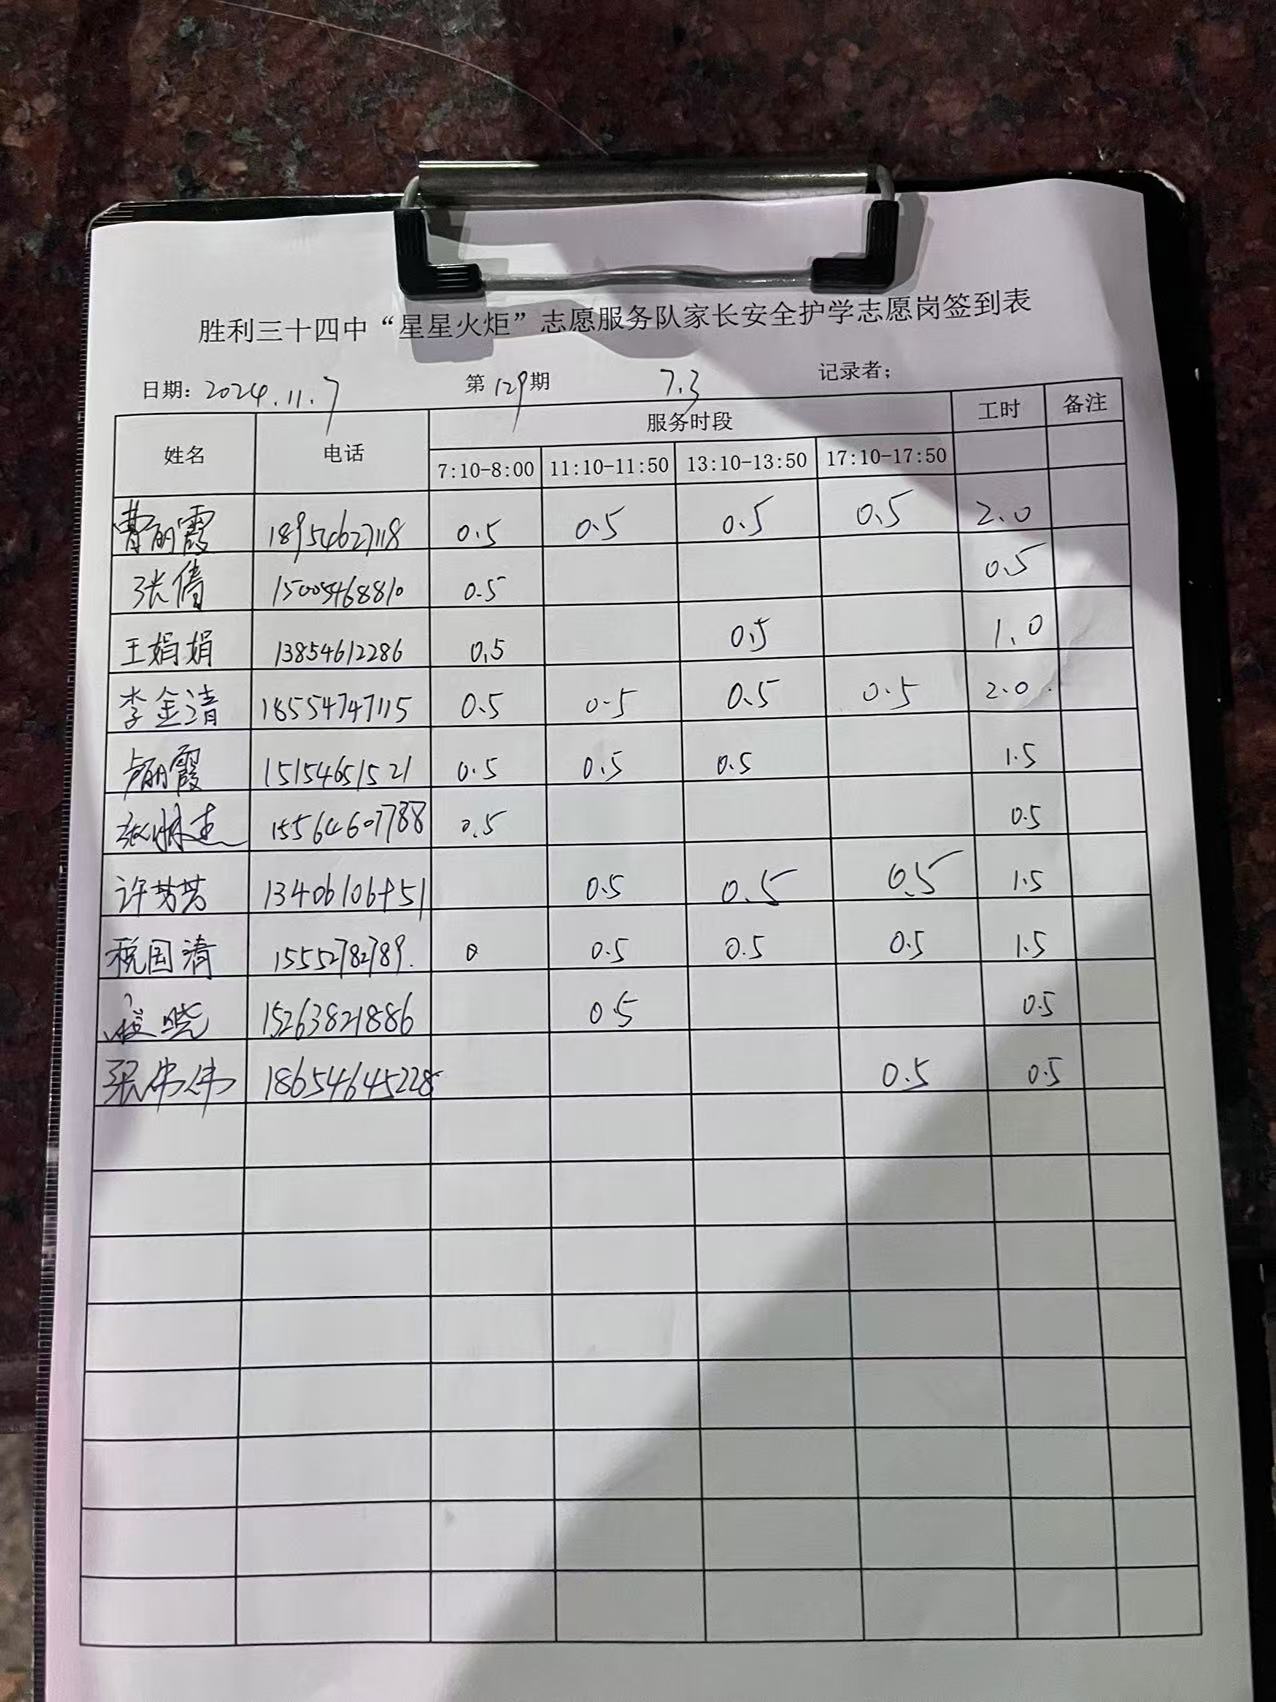 胜利三十四中“星星火炬”志愿服务队家长安全护学志愿岗签到表
日期: 2024.11.7 第129期 7.3 记录者;
姓名 电话 服务时段 工时 备注
7:10-8:00 11:10-11:50 13:10-13:50 17:10-17:50
曹丽霞 18954627118 0.5 0.5 0.5 0.5 2.0
张倩 15005468810 0.5 0.5
王娟娟 13854612286 0.5 0.5 1.0
李金清 18554747115 0.5 0.5 0.5 0.5 2.0
卢丽霞 15154651521 0.5 0.5 0.5 1.5
15564607788 0.5 0.5
许芳芳 13406106451 0.5 0.5 0.5 1.5
税国清 15552782789. 0 0.5 0.5 0.5 1.5
晓 15263821886 0.5 0.5
张伟伟 18654645228 0.5 0.5